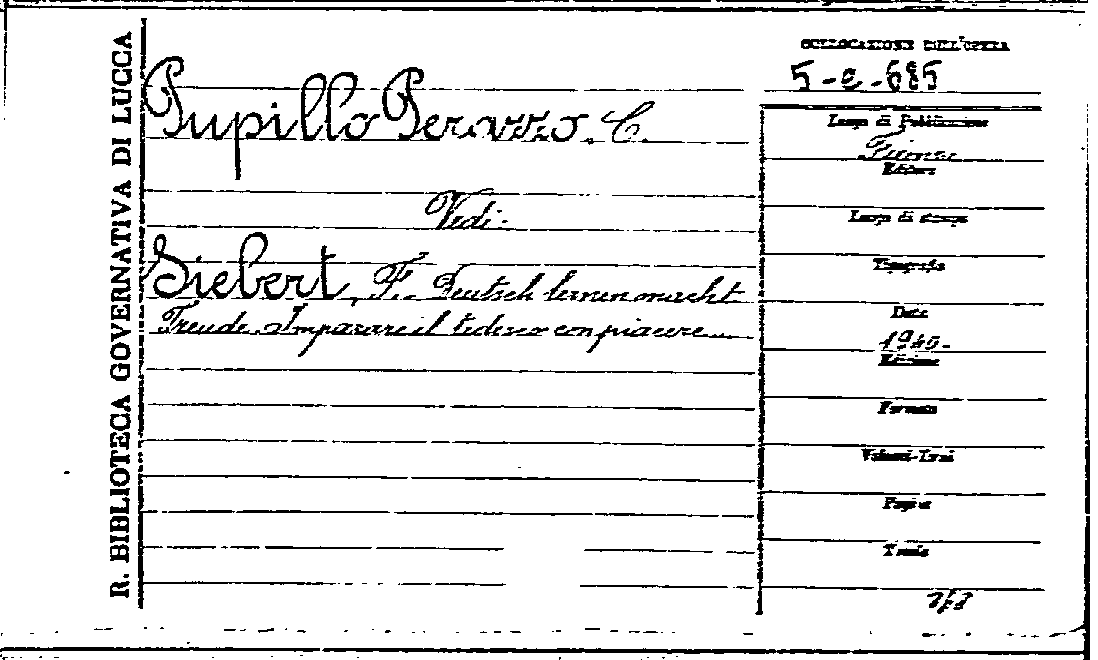 R. BIBLIOTECA GOVERNATIVA DI LUCCA
COLLOCAZIONE DELL'OPERA
5-e-685
Pupillo Perazzo. C.
Vedi:
Siebert, F. - Deutsch lernen macht
Freude. Imparare il tedesco con piacere...
Luogo di Pubblicazione
Firenze
Editore
Luogo di stampa
Tipografia
Data
1940-
Edizione
Formato
Volumi-Tomi
Pagine
Tavole